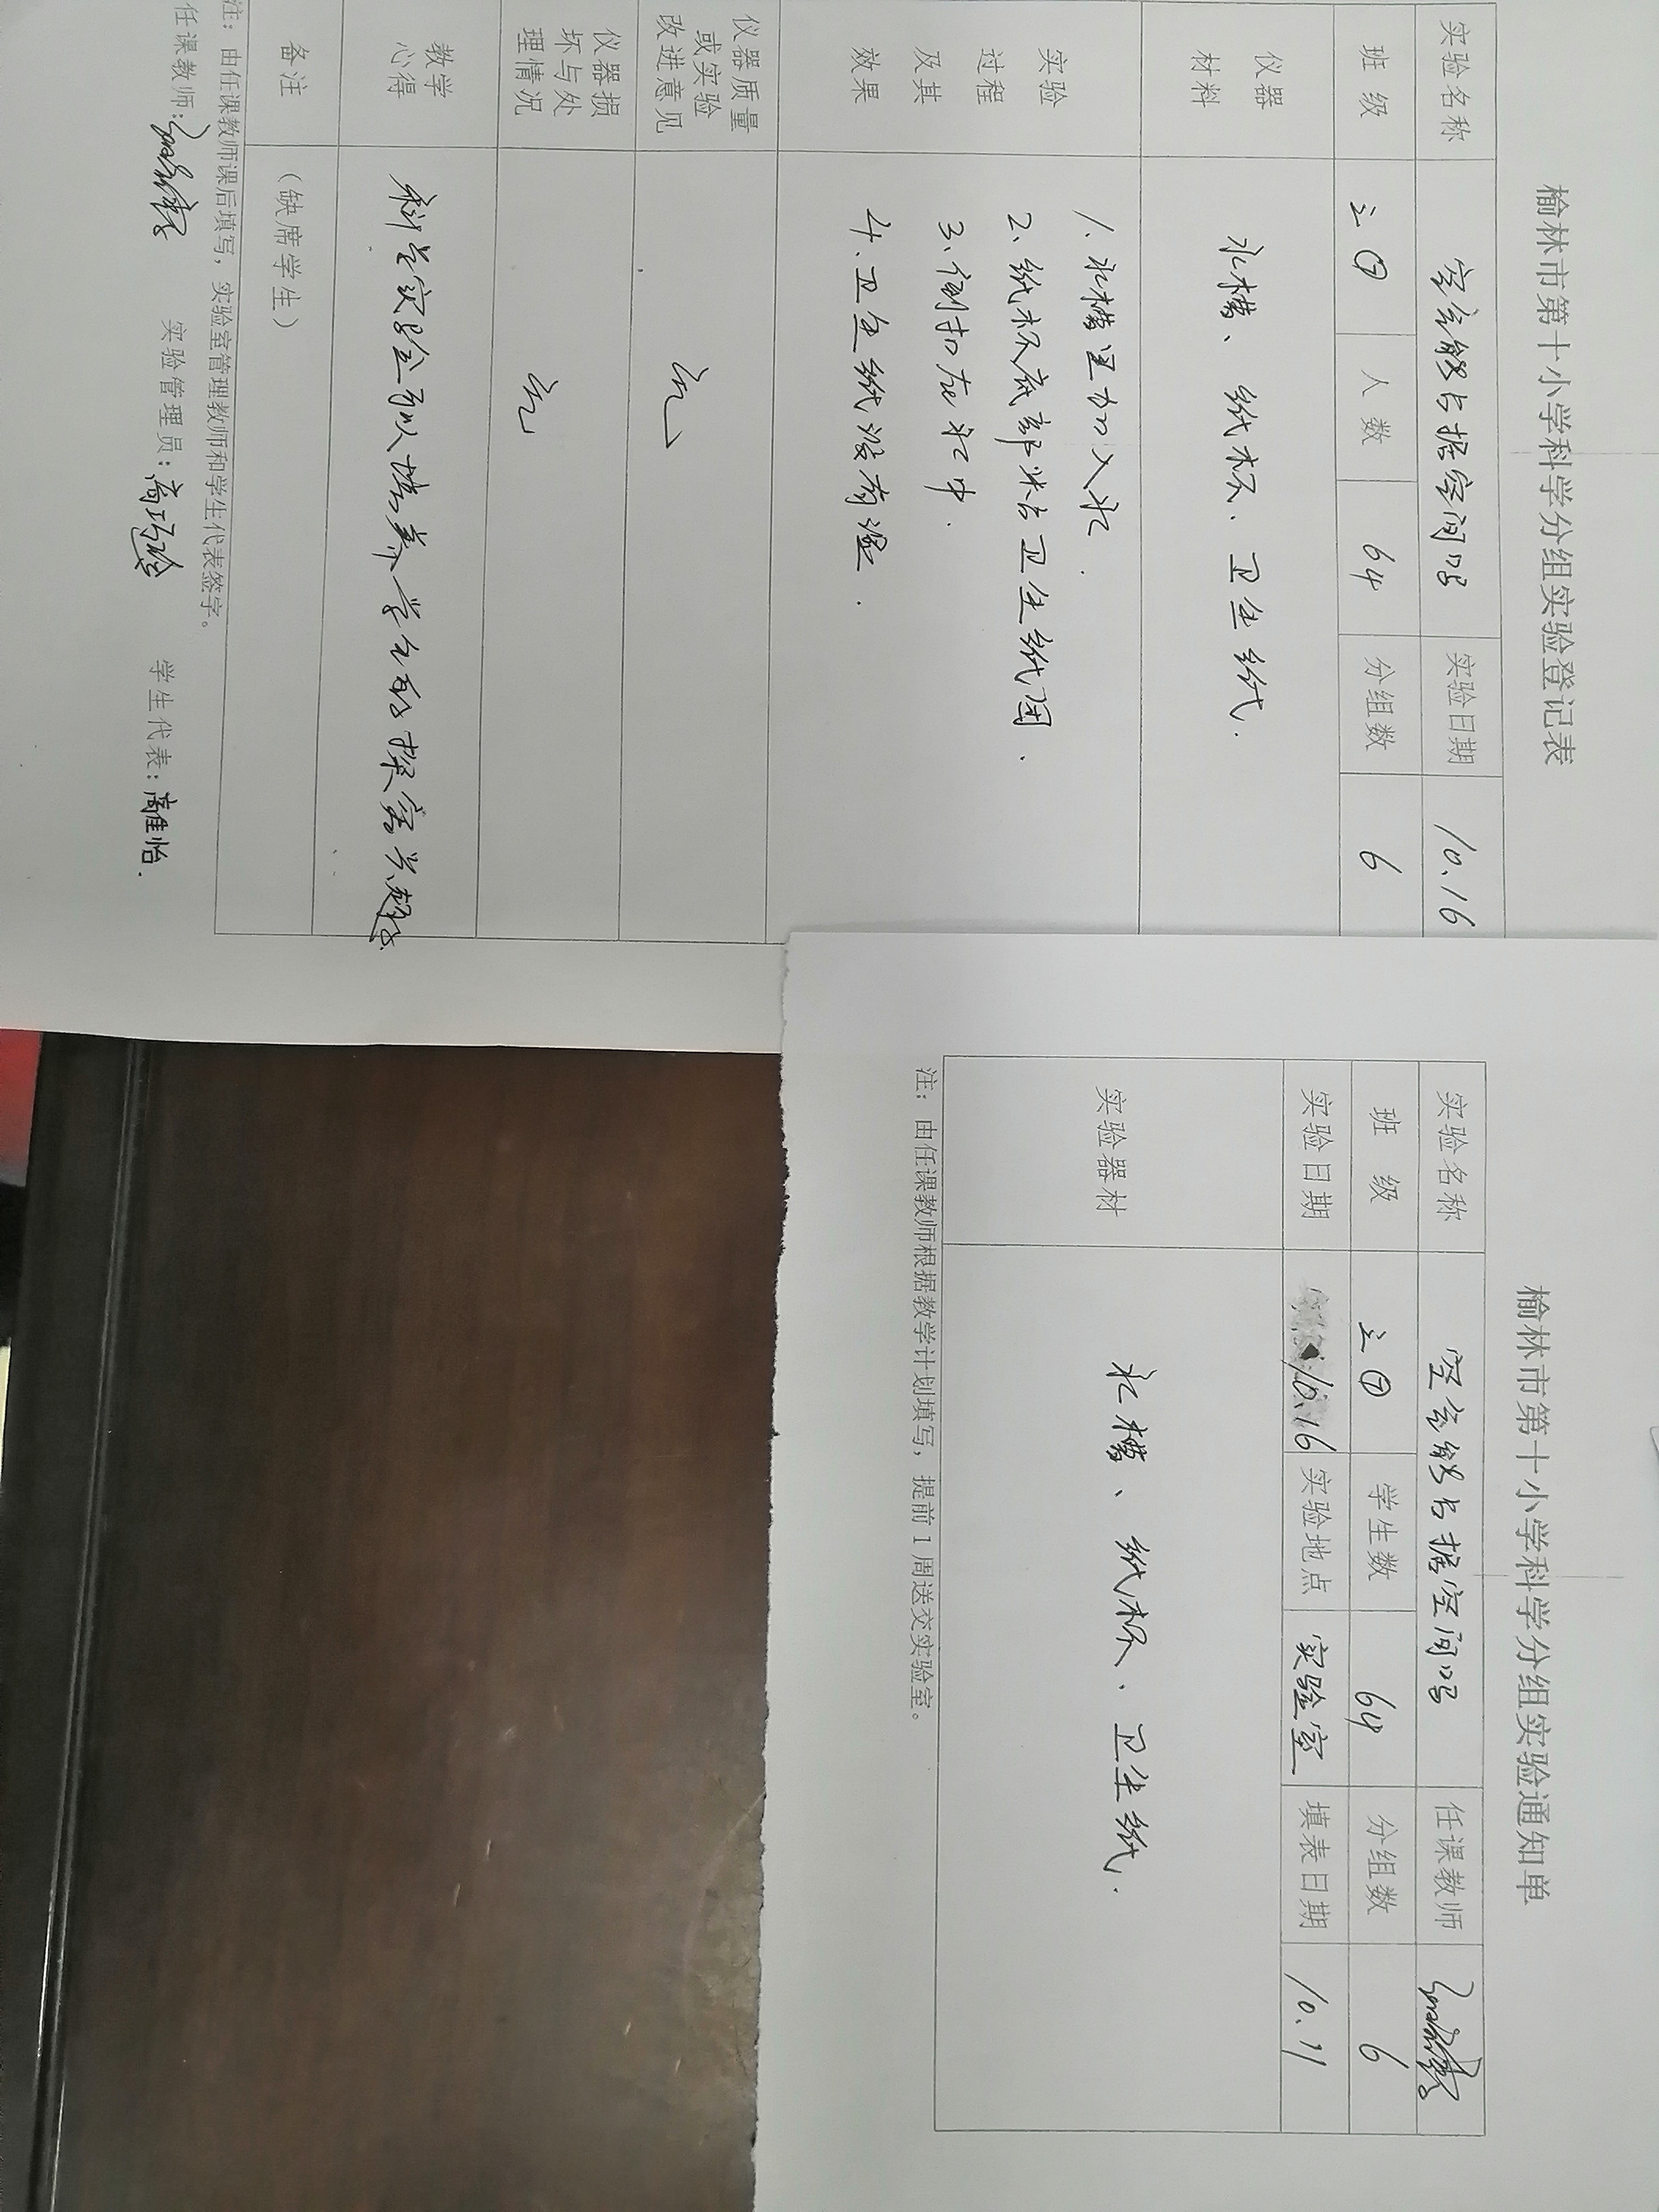 榆林市第十小学科学分组实验登记表
实验名称 空气能占据空间吗 实验日期 10.16
班 级 三⑦ 人 数 64 分组数 6
仪器
材料
水槽、纸杯、卫生纸.
实验
过程
及其
效果
1.水槽里加入水.
2、纸杯底部粘占卫生纸团、
3、倒扣在水中.
4、卫生纸没有湿.
仪器质量
或实验
改进意见
无
仪器损
坏与处
理情况
无
教学
心得
科学实验可以培养学生的探究兴趣
备注 (缺席学生)
注：由任课教师课后填写，实验室管理教师和学生代表签字。
任课教师: 实验管理员: 学生代表:高佳怡.
榆林市第十小学科学分组实验通知单
实验名称 空气能占据空间吗 任课教师
班 级 三⑦ 学生数 64 分组数 6
实验日期 10.16 实验地点 实验室 填表日期 10.11
实验器材 水槽、纸杯、卫生纸.
注：由任课教师根据教学计划填写，提前1周送交实验室。